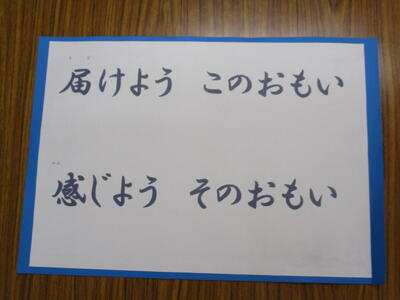 届けよう このおもい
感じよう そのおもい